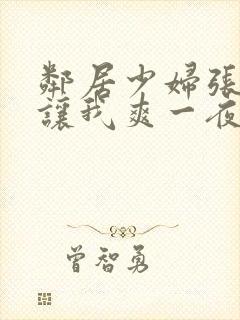 鄰居少婦張
讓我爽一夜
曾智勇